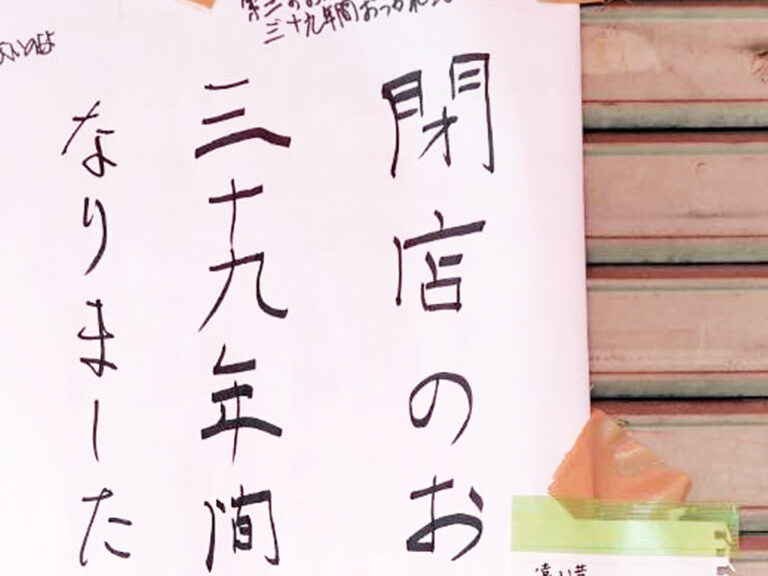 閉店のお
三十九年間
なりました
三十九年間おつかれ